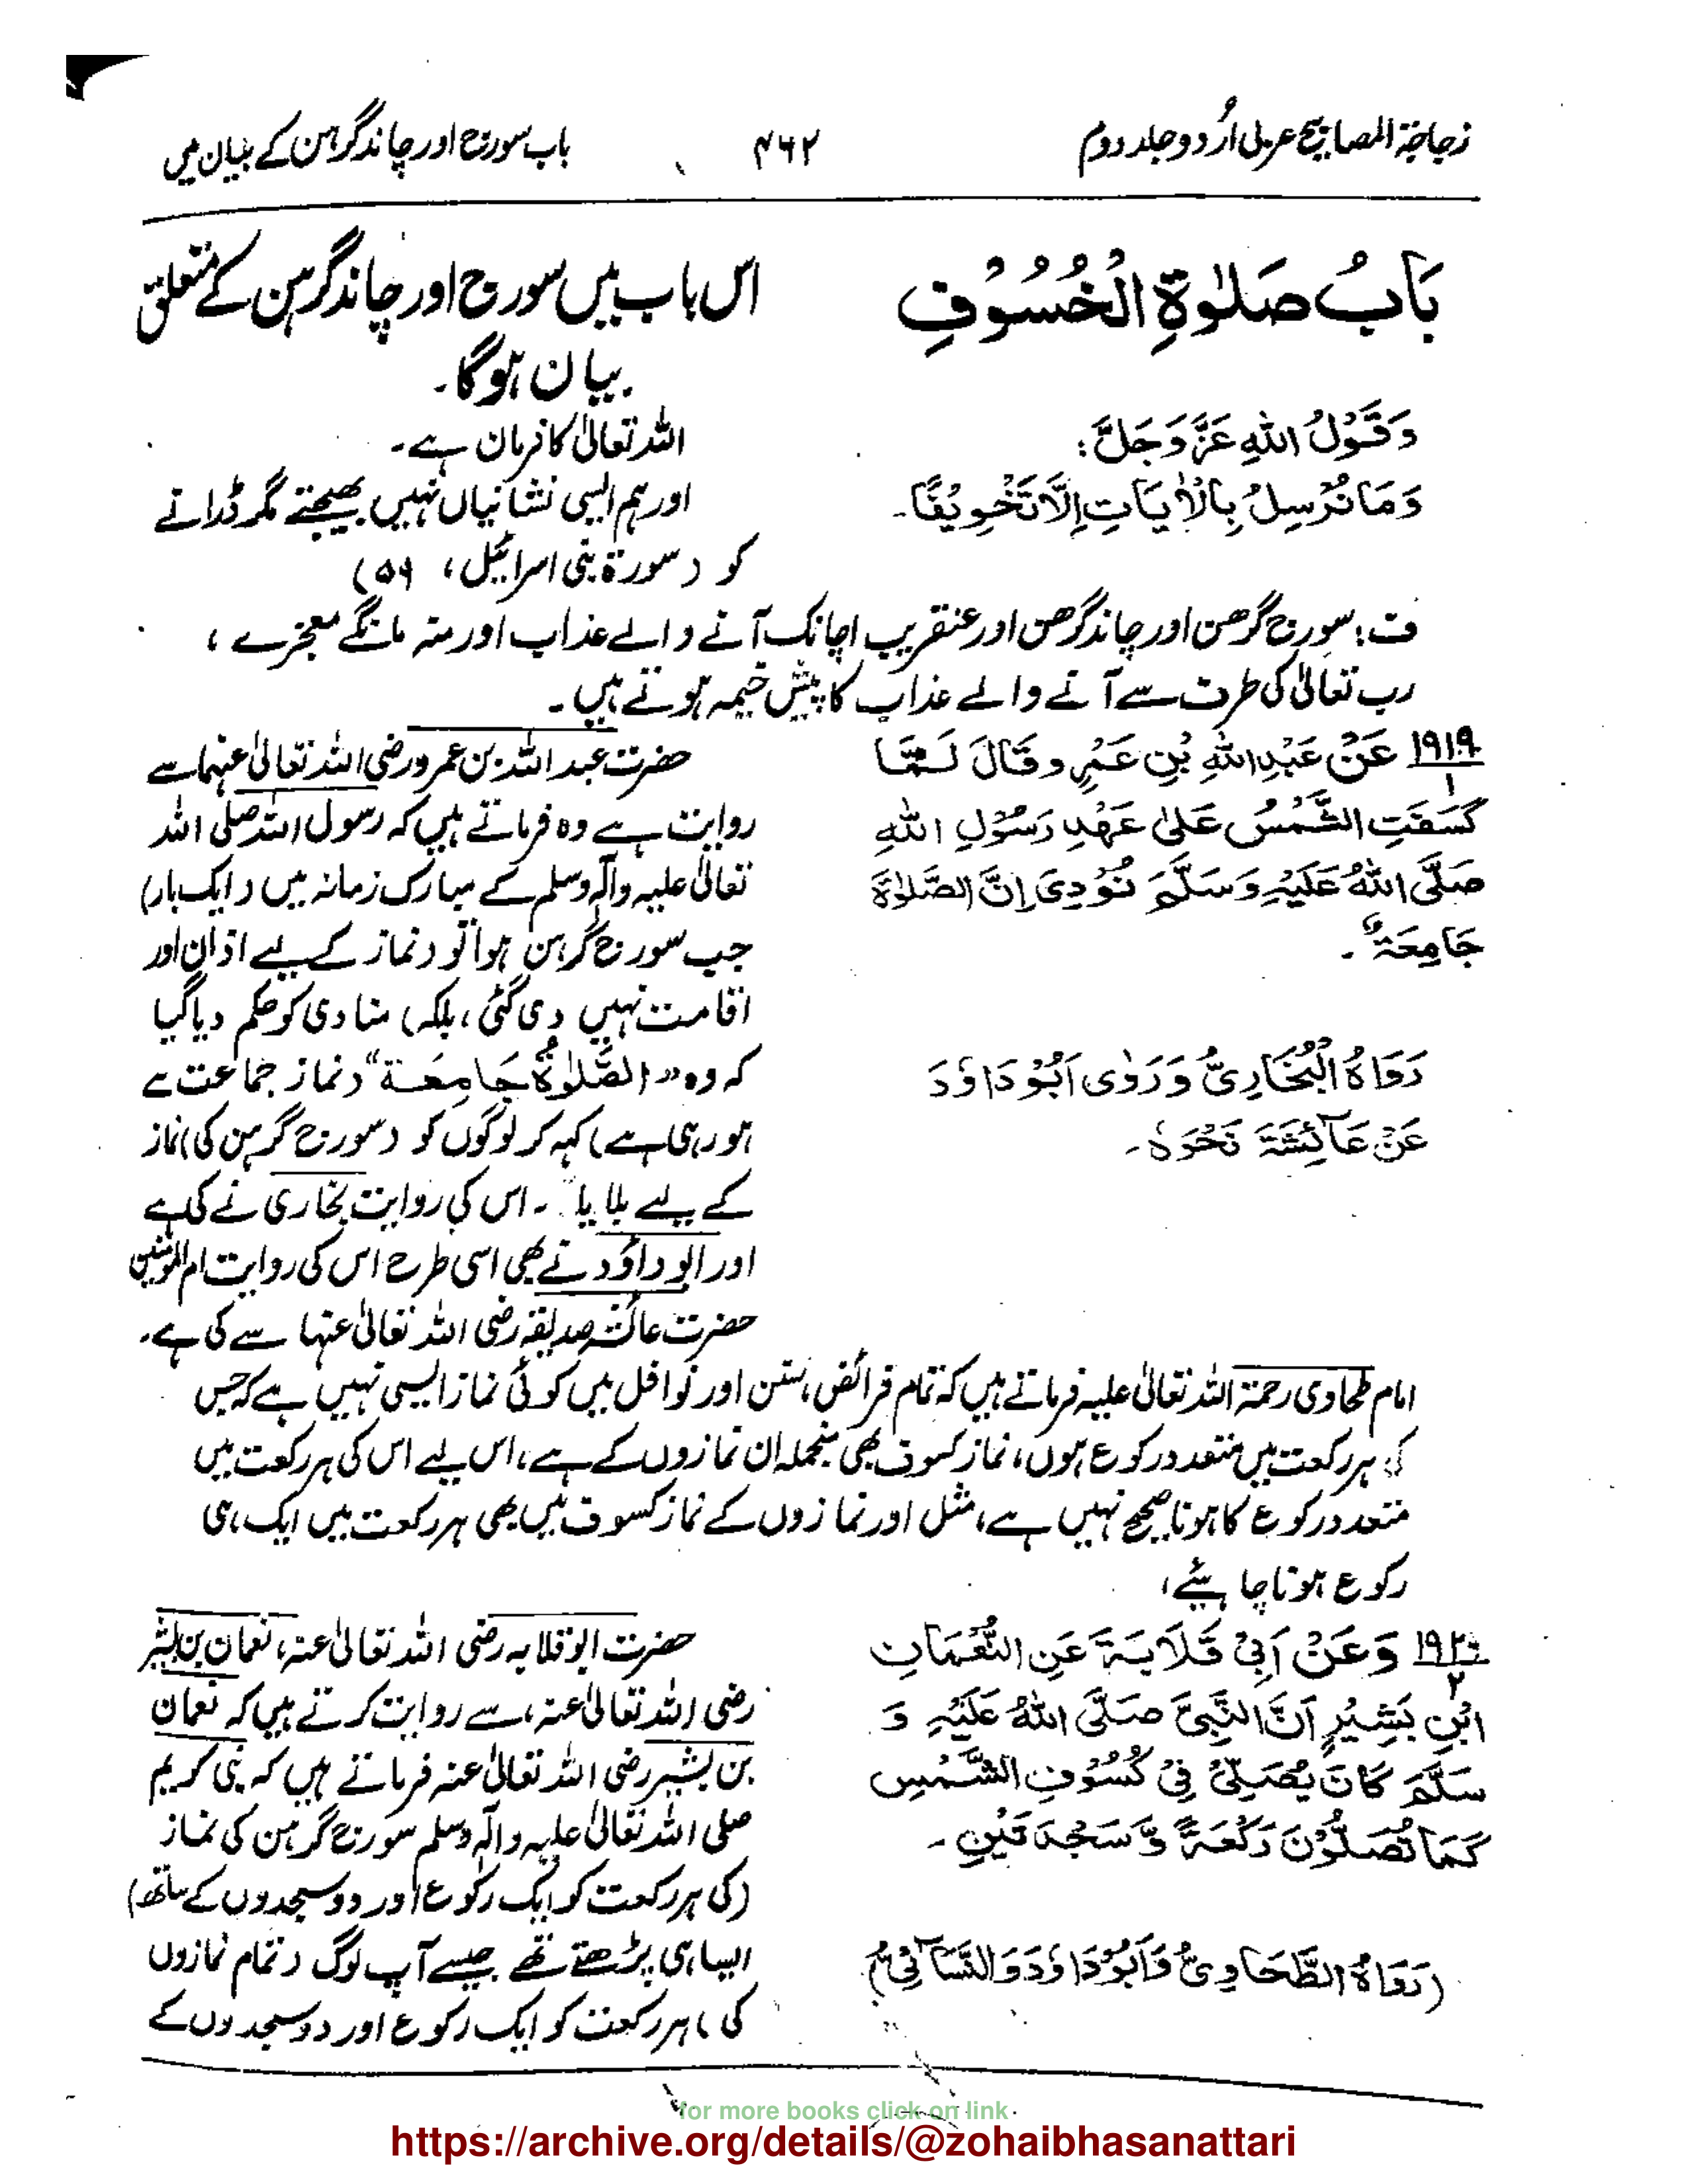 زجاجۃ المصابیح عربی اُردو جلد دوم
۴۶۲
باب سورج اور چاند گرہن کے بیان میں
بَابُ صَلٰوۃِ الْخُسُوْفِ
وَقَوْلُ اللّٰہِ عَزَّ وَجَلَّ:
وَمَا نُرْسِلُ بِالْاٰیَاتِ اِلَّا تَخْوِیْفًا۔
اس باب میں سورج اور چاند گرہن کے متعلق
بیان ہوگا۔
اللہ تعالیٰ کا فرمان ہے۔
اور ہم ایسی نشانیاں نہیں بھیجتے مگر ڈرانے
کو (سورۃ بنی اسرائیل، ۵۹)
ف: سورج گرھن اور چاند گرھن اور عنقریب اچانک آنے والے عذاب اور منہ مانگے معجزے،
رب تعالیٰ کی طرف سے آنے والے عذاب کا پیش خیمہ ہوتے ہیں۔
۱۹۱۹/۱ عَنْ عَبْدِ اللّٰہِ بْنِ عَمْرٍو قَالَ لَمَّا
کَسَفَتِ الشَّمْسُ عَلٰی عَھْدِ رَسُوْلِ اللّٰہِ
صَلَّی اللّٰہُ عَلَیْہِ وَسَلَّمَ نُوْدِیَ اِنَّ الصَّلٰوۃَ
جَامِعَۃٌ۔
رَوَاہُ الْبُخَارِیُّ وَرَوٰی اَبُوْ دَاوٗدَ
عَنْ عَآئِشَۃَ نَحْوَہٗ۔
حضرت عبد اللہ بن عمرو رضی اللہ تعالیٰ عنہما سے
روایت ہے وہ فرماتے ہیں کہ رسول اللہ صلی اللہ
تعالیٰ علیہ واٰلہٖ وسلم کے مبارک زمانہ میں (ایک بار)
جب سورج گرہن ہوا تو (نماز کے لیے اذان اور
اقامت نہیں دی گئی، بلکہ) منادی کو حکم دیا گیا
کہ وہ "الصَّلٰوۃُ جَامِعَۃ" (نماز جماعت سے
ہو رہی ہے) کہہ کر لوگوں کو (سورج گرہن کی) نماز
کے لیے بلایا۔ اس کی روایت بخاری نے کی ہے
اور ابو داؤد نے بھی اسی طرح اس کی روایت ام المومنین
حضرت عائشہ صدیقہ رضی اللہ تعالیٰ عنہا سے کی ہے۔
امام طحاوی رحمۃ اللہ تعالیٰ علیہ فرماتے ہیں کہ تمام فرائض، سنن اور نوافل میں کوئی نماز ایسی نہیں ہے کہ جس
کی ہر رکعت میں متعدد رکوع ہوں، نماز کسوف بھی منجملہ ان نمازوں کے ہے، اس لیے اس کی ہر رکعت میں
متعدد رکوع کا ہونا صحیح نہیں ہے، مثل اور نمازوں کے نماز کسوف میں بھی ہر رکعت میں ایک ہی
رکوع ہونا چاہیئے،
۱۹۲۰/۲ وَعَنْ اَبِیْ قَلَابَۃَ عَنِ النُّعْمَانِ
ابْنِ بَشِیْرٍ اَنَّ النَّبِیَّ صَلَّی اللّٰہُ عَلَیْہِ وَ
سَلَّمَ کَانَ یُصَلِّیْ فِیْ کُسُوْفِ الشَّمْسِ
کَمَا تُصَلُّوْنَ رَکْعَۃً وَّسَجْدَتَیْنِ۔
(رَوَاہُ الطَّحَاوِیُّ وَاَبُوْ دَاوٗدَ وَالنَّسَآئِیُّ)
حضرت ابو قلابہ رضی اللہ تعالیٰ عنہ، نعمان بن بشیر
رضی اللہ تعالیٰ عنہ، سے روایت کرتے ہیں کہ نعمان
بن بشیر رضی اللہ تعالیٰ عنہ فرماتے ہیں کہ نبی کریم
صلی اللہ تعالیٰ علیہ واٰلہٖ وسلم سورج گرہن کی نماز
(کی ہر رکعت کو ایک رکوع اور دو سجدوں کے ساتھ)
ایسا ہی پڑھتے تھے جیسے آپ لوگ (تمام نمازوں
کی) ہر رکعت کو ایک رکوع اور دو سجدوں کے
for more books click on link
https://archive.org/details/@zohaibhasanattari